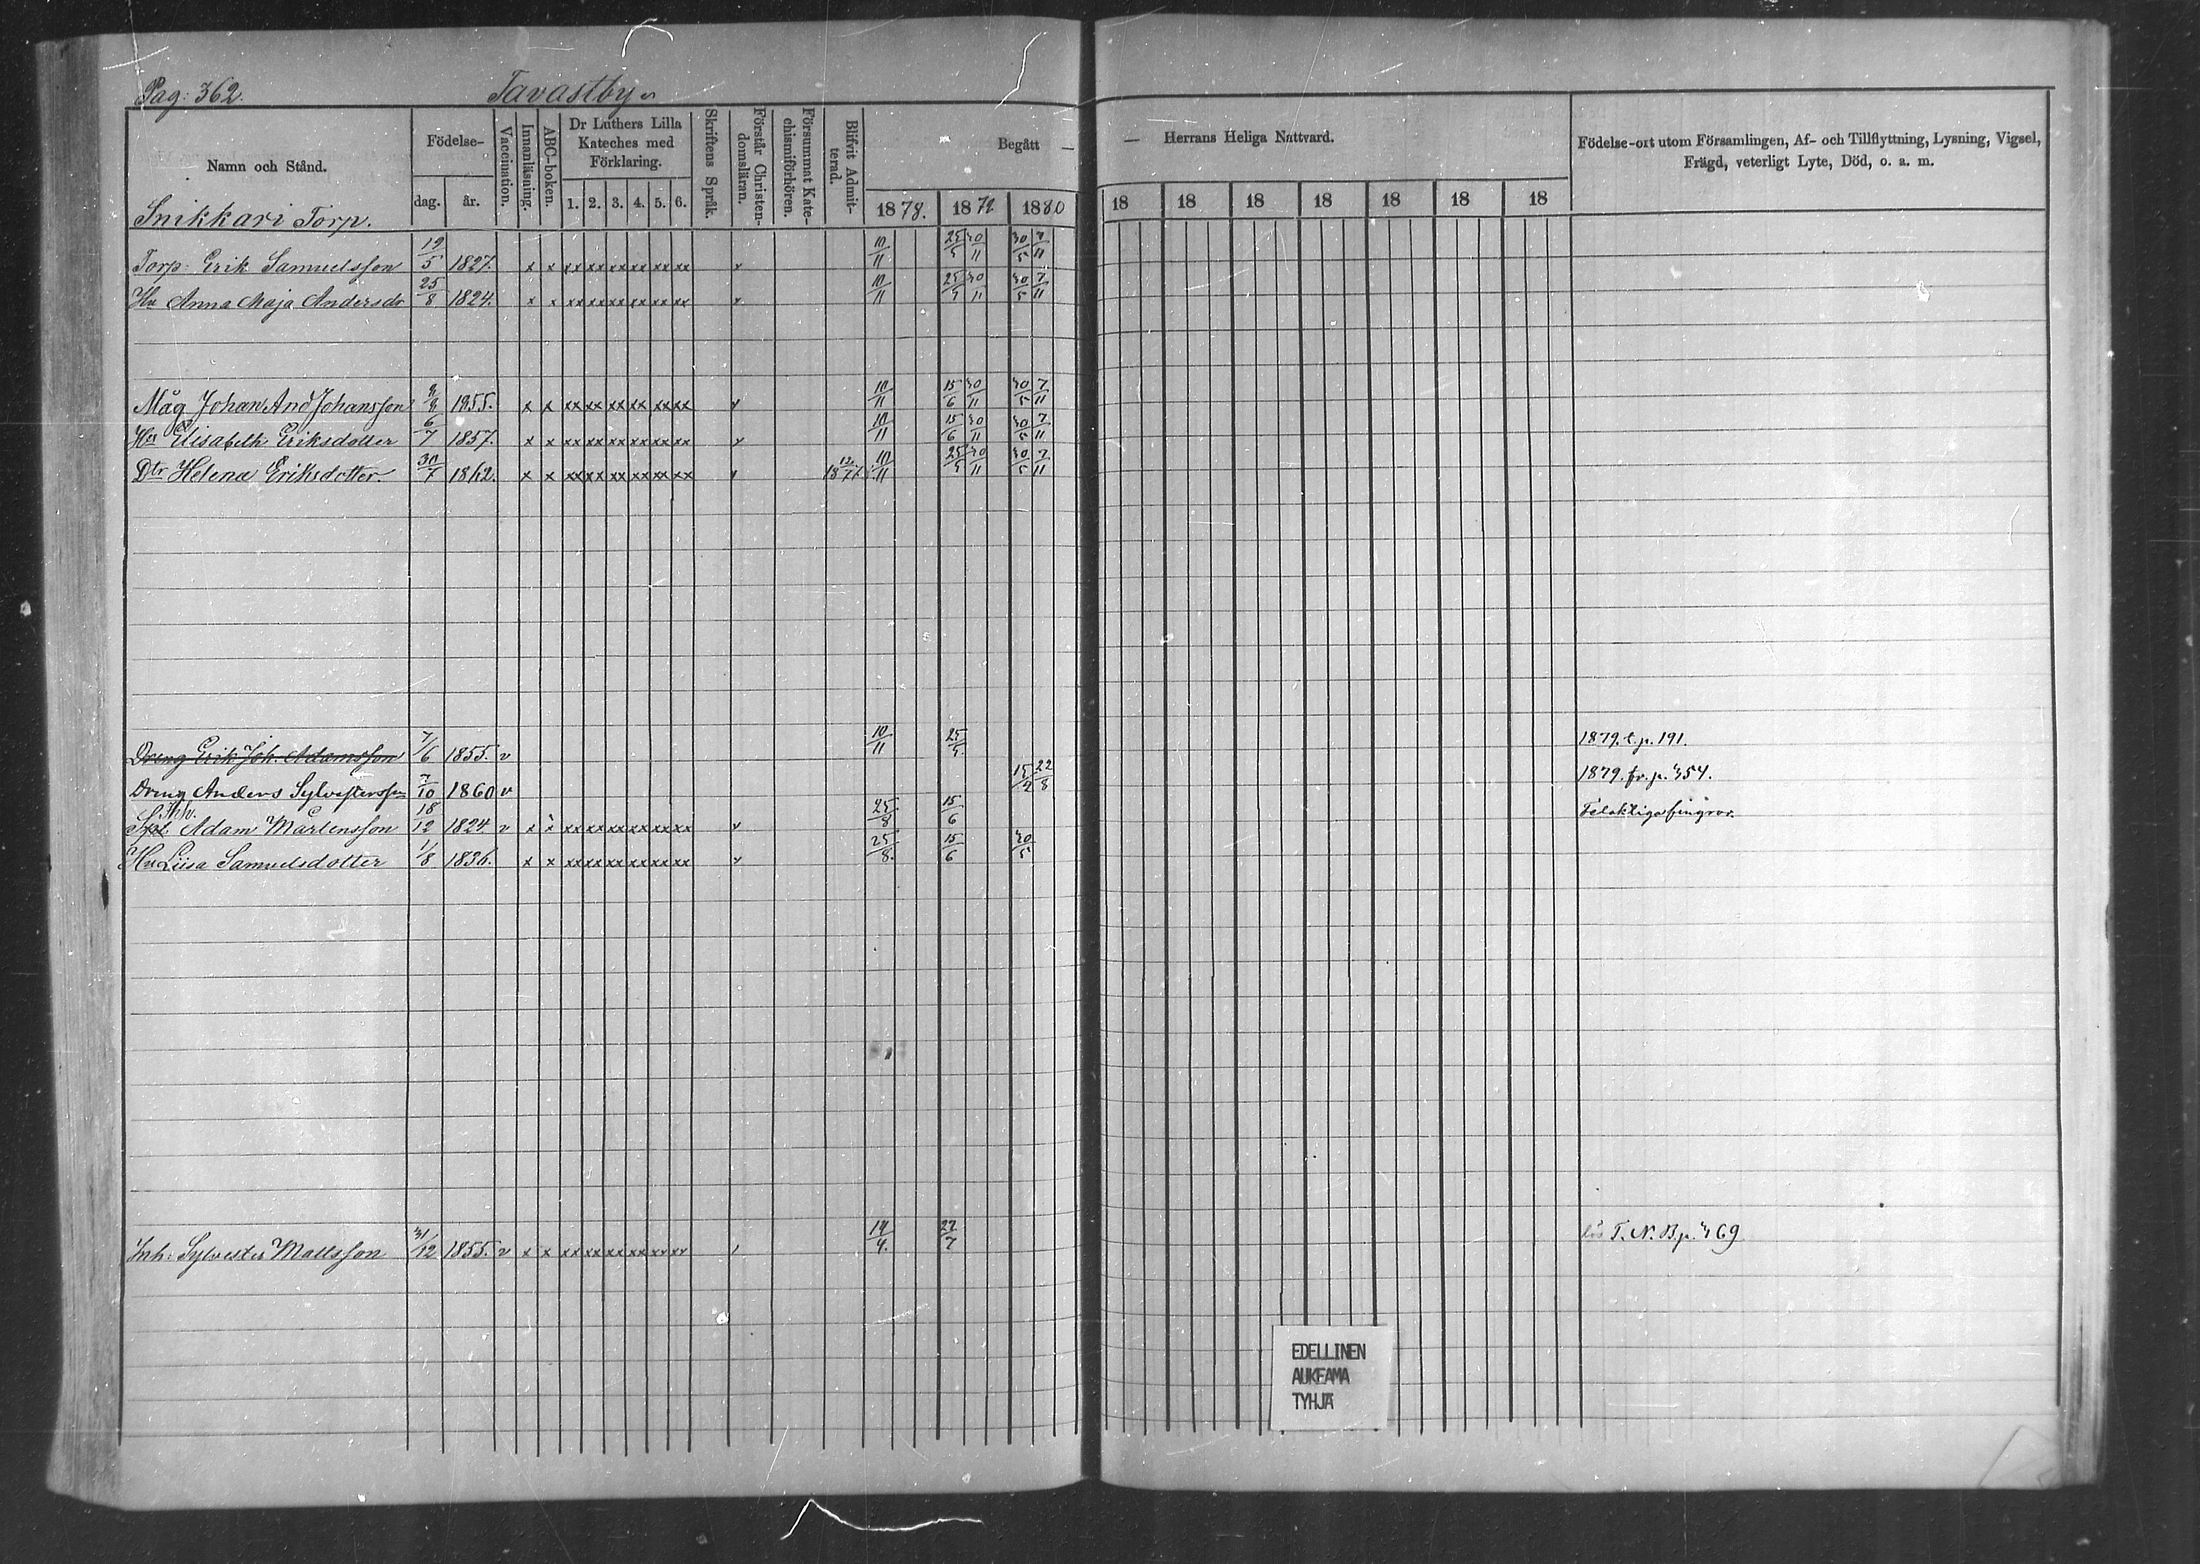 Pag: 362. Tavastby
Namn och Stånd. Födelse- dag. år. Vaccination. Innanläsning. ABC-boken. Dr Luthers Lilla Kateches med Förklaring. 1. 2. 3. 4. 5. 6. Skriftens Språk. Förstår Christendomsläran. Försummat Katechismiförhören. Blifvit Admitterad. Begått — 1878. 1879. 1880
— Herrans Heliga Nattvard. 18 18 18 18 18 18 18
Födelse-ort utom Församlingen, Af- och Tillflyttning, Lysning, Vigsel,
Frägd, veterligt Lyte, Död, o. a. m.
Snikkari Torp.
Torp. Erik Samuelsson 19/5 1827. x x xx xx xx xx xx xx v 10/11 25/5 30/11 30/5 7/11
Hu Anna Maja Andersdr 25/8 1824. x x xx xx xx xx xx xx v 10/11 25/5 30/11 30/5 7/11
Måg Johan And Johansson 1855. x x xx xx xx xx xx xx v 10/11 15/6 30/11 30/5 7/11
Hu Elisabeth Eriksdotter 6/7 1857. x x xx xx xx xx xx xx v 10/11 15/6 30/11 30/5 7/11
Dtr Helena Eriksdotter. 30/7 1862. x x xx xx xx xx xx xx v 10/11 25/5 30/11 30/5 7/11
Dreng Erik Joh. Adamsson 7/6 1855. v 10/11 25/5 1879. t. p. 191.
Dreng Anders Sylvestersson 7/10 1860 v 15/2 22/8 1879. fr. p. 354.
Adam Mårtensson 18/12 1824 v x x xx xx xx xx xx xx v 25/8 15/6
Hu Liisa Samuelsdotter 1/8 1836. x x xx xx xx xx xx xx v 25/8. 15/6 30/5
Inh: Sylvester Mattsson 31/12 1855. v x x xx xx xx xx xx xx 14/4. 27/7 T. N. B. p. 369
EDELLINEN
AUKEAMA
TYHJÄ